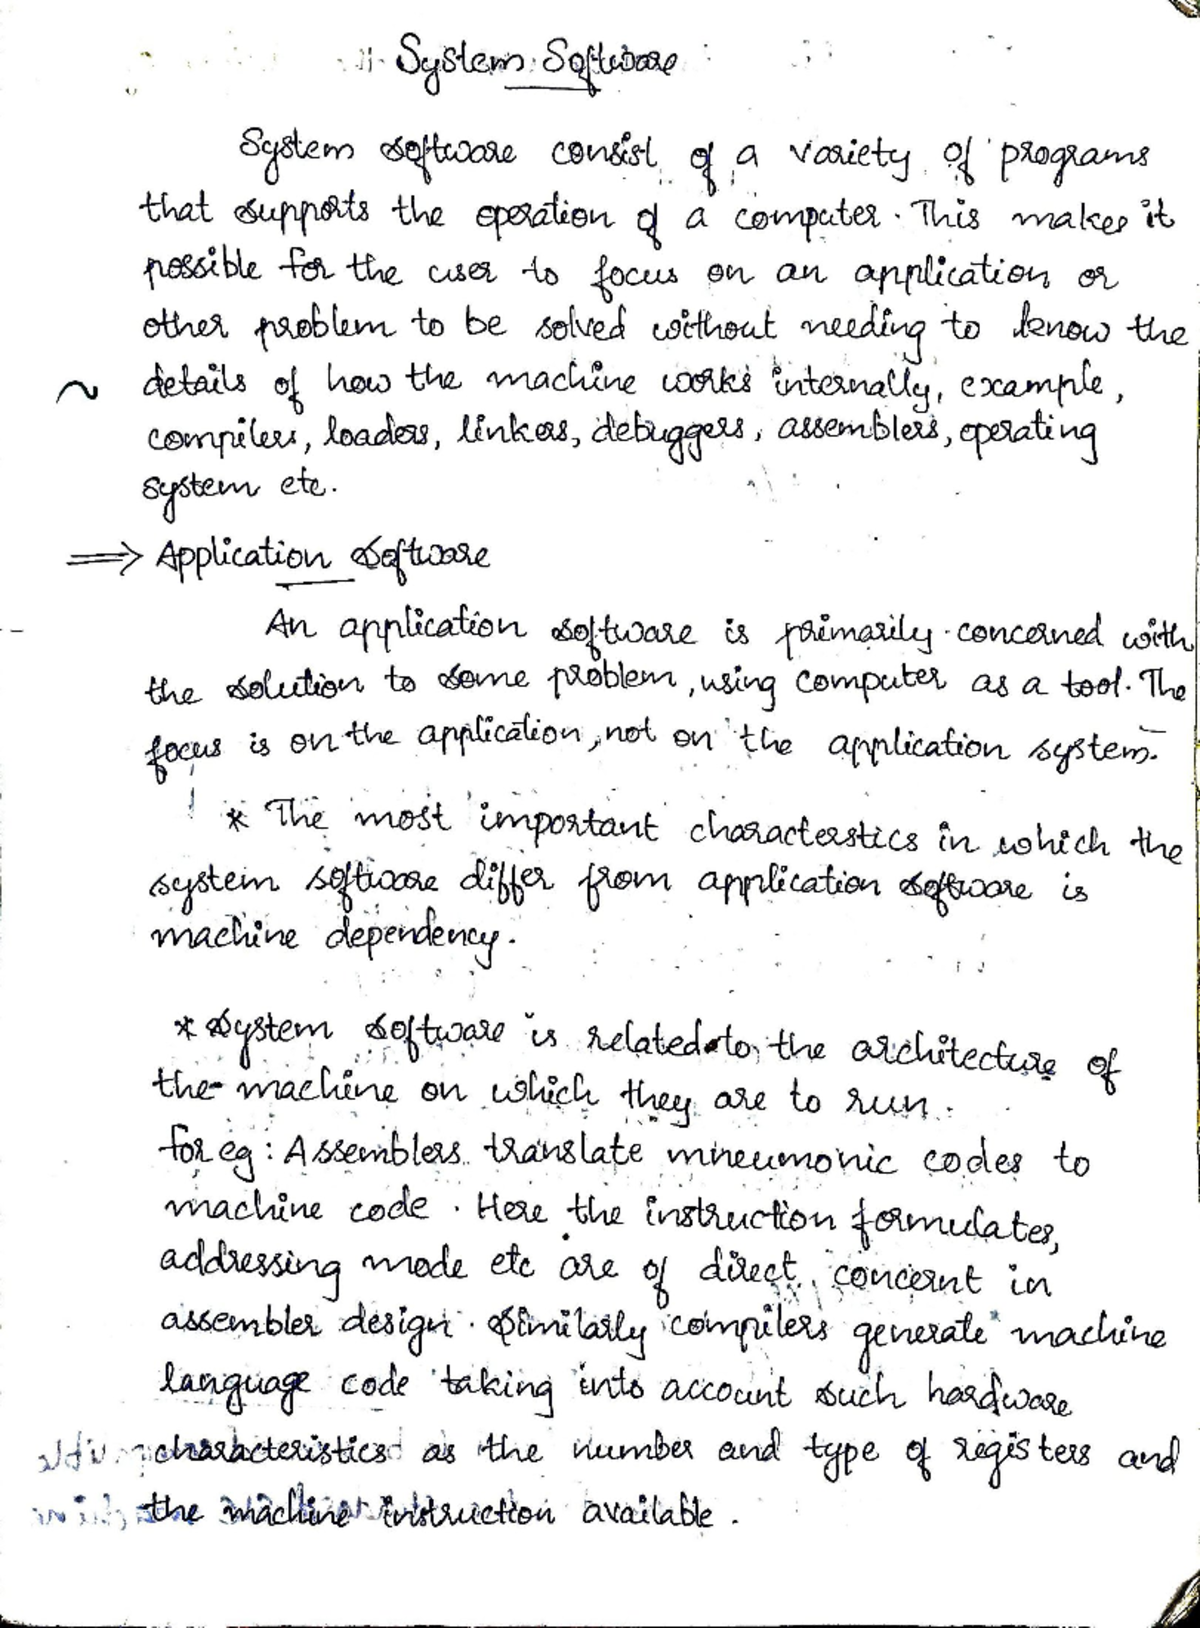 System Software
System software consist of a variety of programs
that supports the operation of a computer. This makes it
possible for the user to focus on an application or
other problem to be solved without needing to know the
details of how the machine works internally, example,
compilers, loaders, linkers, debuggers, assemblers, operating
system etc.
⟹ Application Software
An application software is primarily concerned with
the solution to some problem, using computer as a tool. The
focus is on the application, not on the application system.
* The most important characterstics in which the
system software differ from application software is
machine dependency.
* System software is related to the architecture of
the machine on which they are to run.
for eg: Assemblers translate mneumonic codes to
machine code. Here the instruction formulates,
addressing mode etc are of direct concernt in
assembler design. Similarly compilers generate machine
language code taking into account such hardware
characteristics as the number and type of registers and
the machine instruction available.